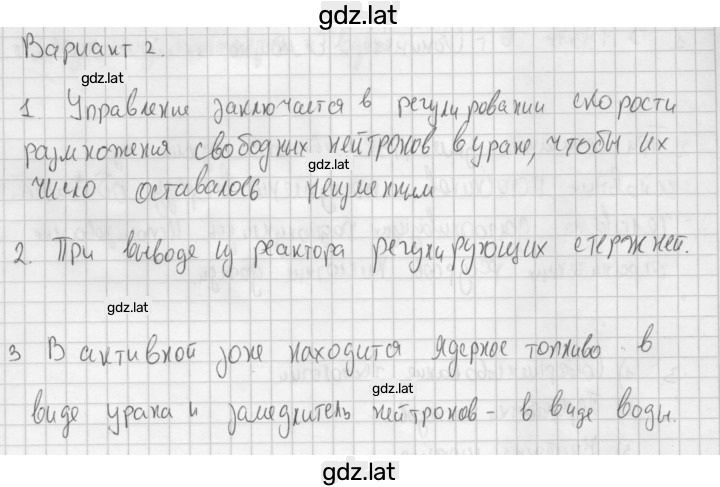 gdz.lat
Вариант 2.
gdz.lat
1 Управление заключается в регулировании скорости
размножения свободных нейтронов в уране, чтобы их
gdz.lat
число оставалось неизменным
2. При выводе из реактора регулирующих стержней.
gdz.lat
3 В активной зоне находится ядерное топливо в
gdz.lat
виде урана и замедлитель нейтронов - в виде воды.
gdz.lat